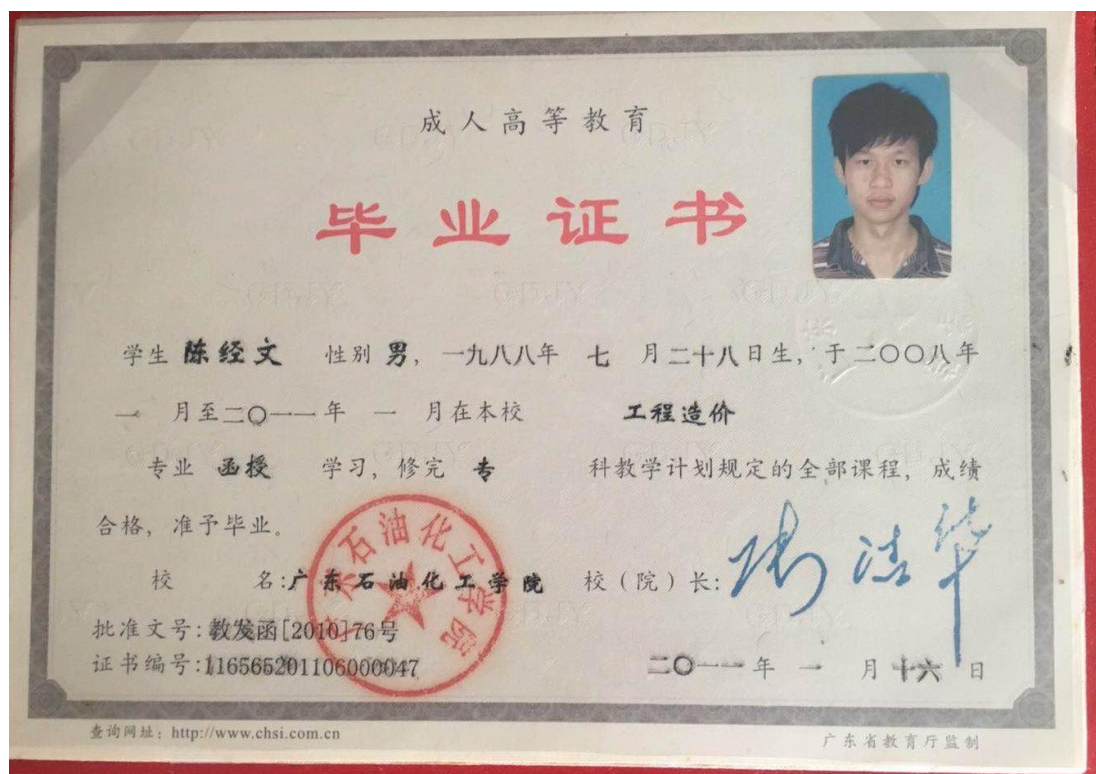 成人高等教育
毕业证书
学生 陈经文 性别 男，一九八八年 七 月二十八日生，于二〇〇八年
一 月至二〇一一年 一 月在本校 工程造价
专业 函授 学习，修完 专 科教学计划规定的全部课程，成绩
合格，准予毕业。
校 名：广东石油化工学院 校（院）长：
批准文号：教发函[2010]76号
证书编号：116565201106000047
二〇一一年 一 月 十六 日
广东石油化工学院
查询网址：http://www.chsi.com.cn
广东省教育厅监制